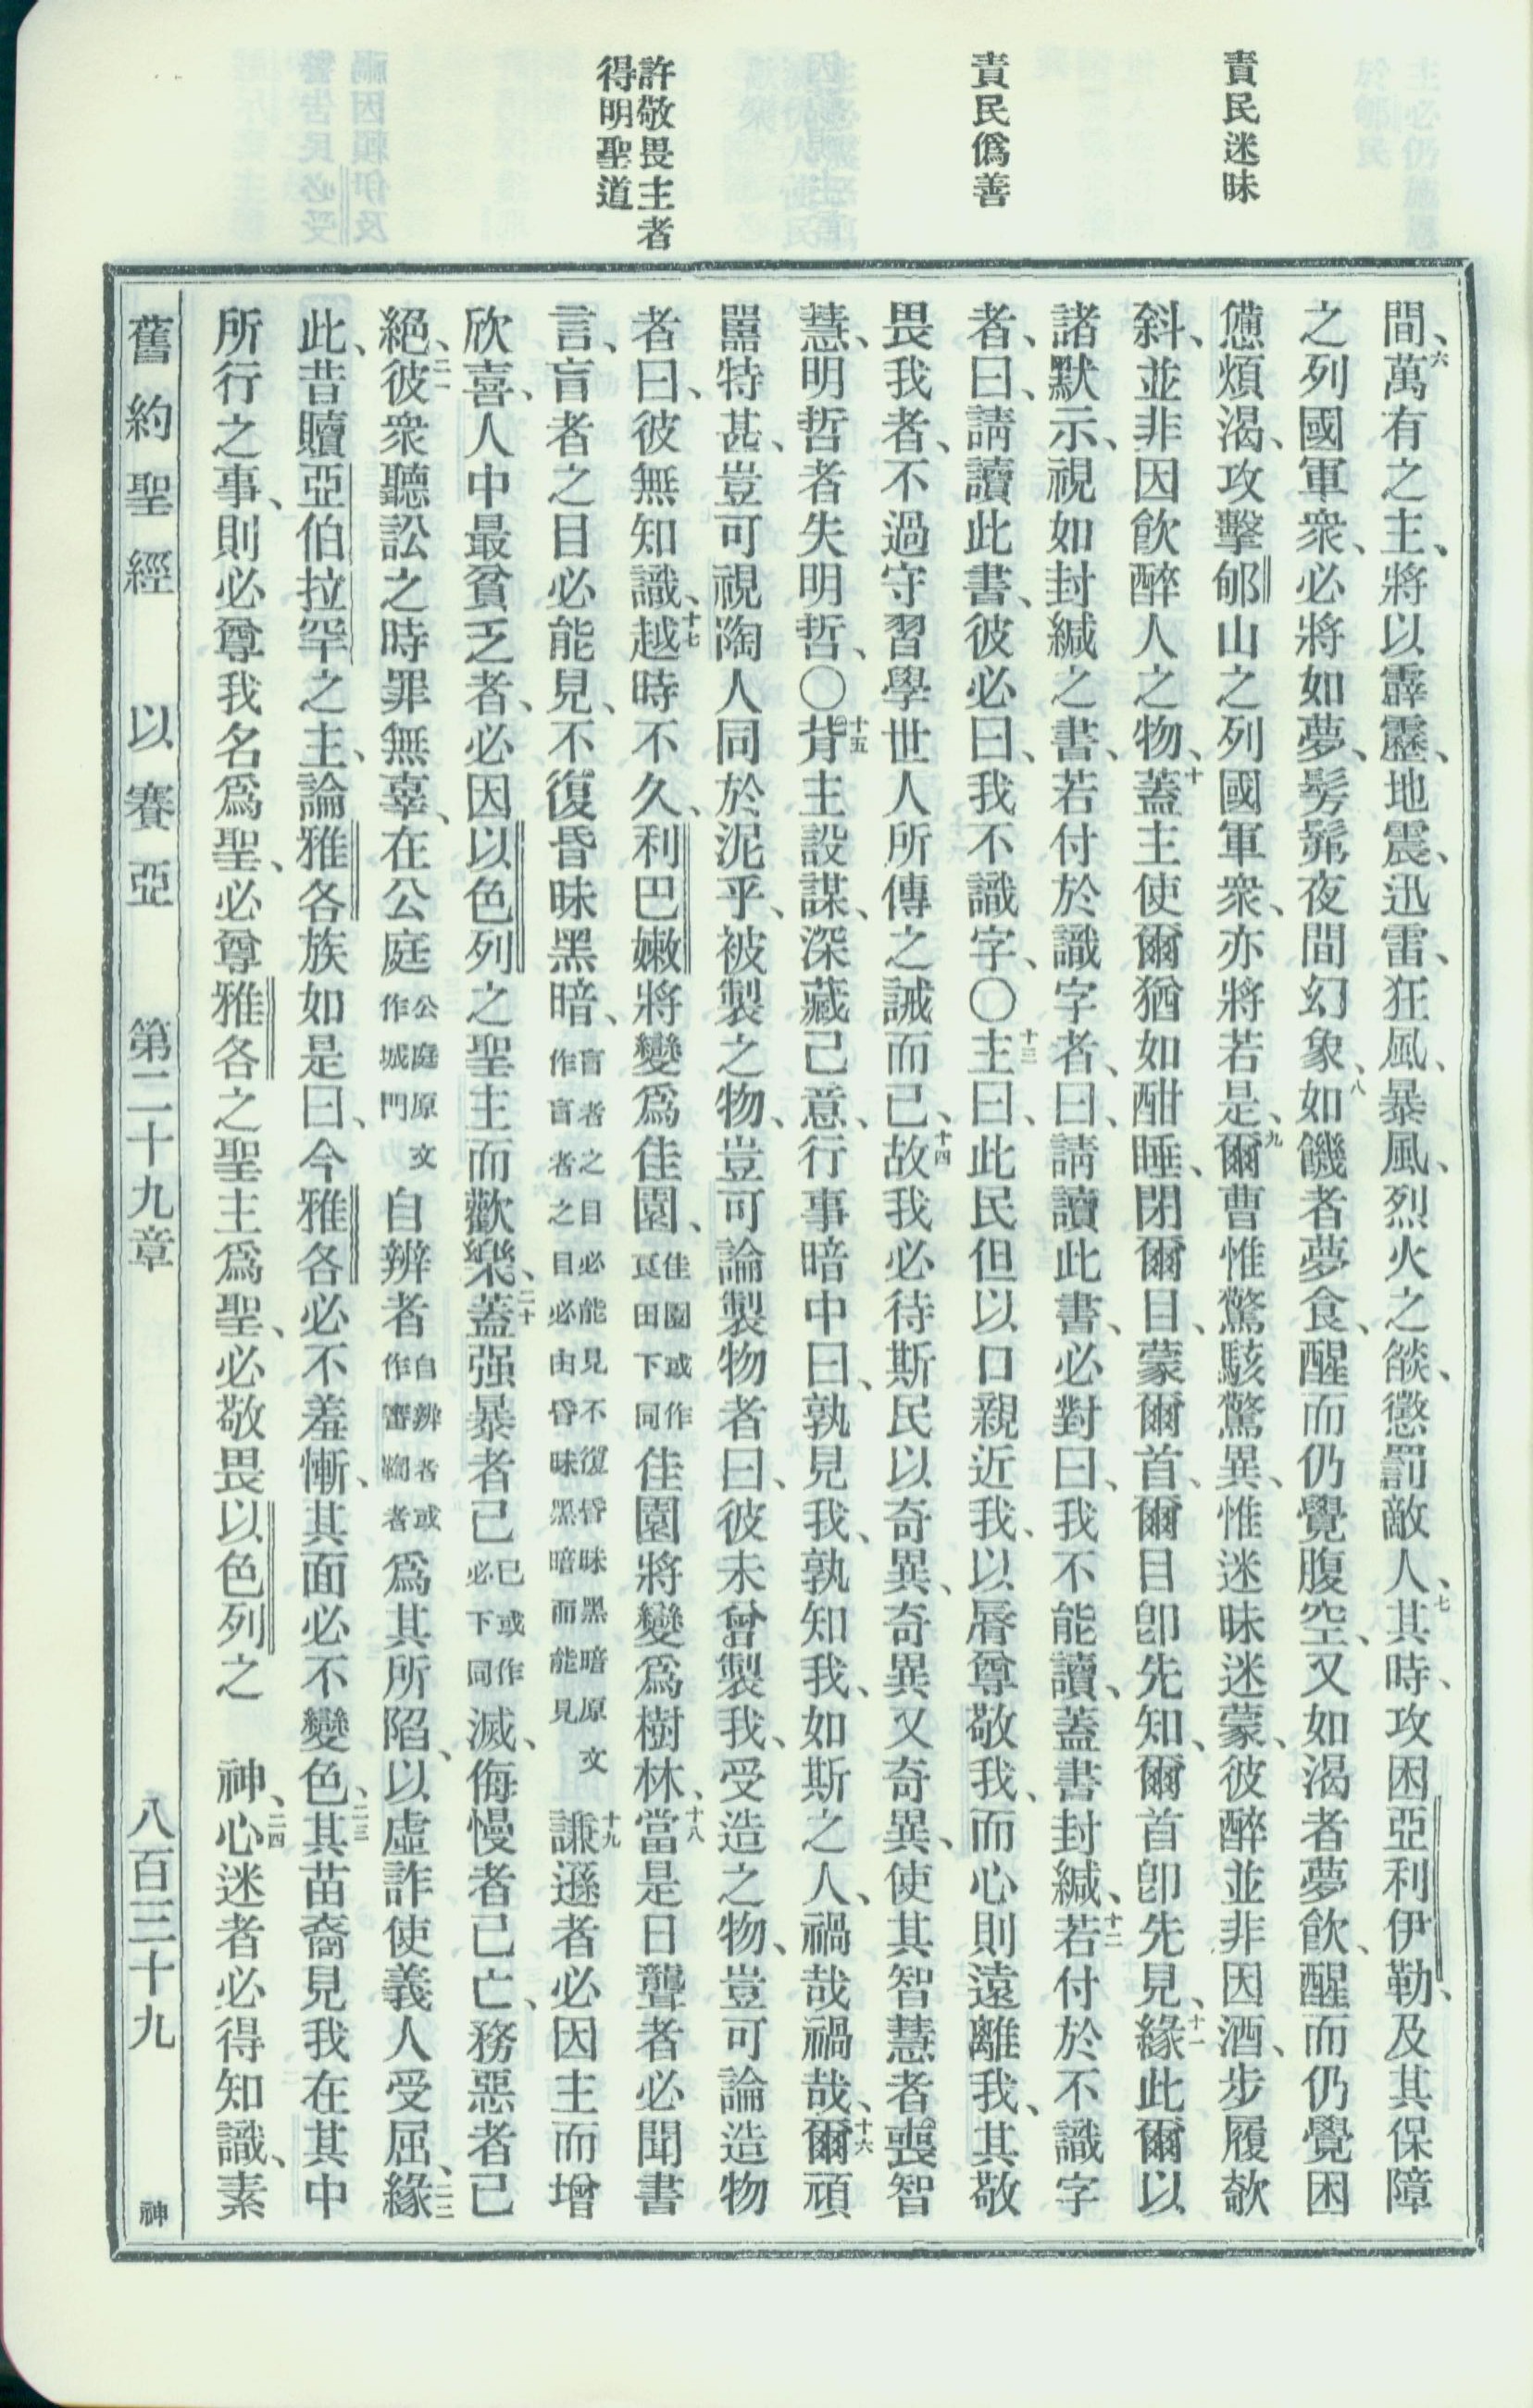 責民迷昧
責民僞善
許敬畏主者
得明聖道
間、六萬有之主、將以霹靂、地震、迅雷、狂風、暴風、烈火之燄、懲罰敵人、七其時、攻困亞利伊勒、及其保障
之列國軍衆、必將如夢、髣髴夜間幻象、八如饑者夢食、醒而仍覺腹空、又如渴者夢飲、醒而仍覺困
憊煩渴、攻擊郇山之列國軍衆、亦將若是、九爾曹惟驚駭驚異、惟迷昧迷蒙、彼醉並非因酒、步履欹
斜、並非因飲醉人之物、十蓋主使爾猶如酣睡、閉爾目、蒙爾首、爾目卽先知、爾首卽先見、十一緣此爾以
諸默示、視如封緘之書、若付於識字者、曰、請讀此書、必對曰、我不能讀、蓋書封緘、十二若付於不識字
者、曰、請讀此書、彼必曰、我不識字、〇十三主曰、此民但以口親近我、以脣尊敬我、而心則遠離我、其敬
畏我者、不過守習學世人所傳之誡而已、十四故我必待斯民以奇異、奇異又奇異、使其智慧者喪智
慧、明哲者失明哲、〇十五背主設謀、深藏己意、行事暗中曰、孰見我、孰知我、如斯之人、禍哉禍哉、十六爾頑
嚚特甚、豈可視陶人同於泥乎、被製之物、豈可論製物者曰、彼未曾製我、受造之物、豈可論造物
者曰、彼無知識、十七越時不久、利巴嫩將變爲佳園、佳園或作良田下同佳園將變爲樹林、十八當是日聾者必聞書
言、盲者之目必能見、不復昏昧黑暗、盲者之目必能見不復昏昧黑暗原文作盲者之目必由昏昧黑暗而能見十九謙遜者必因主而增
欣喜、人中最貧乏者、必因以色列之聖主而歡樂、二十蓋强暴者已已或作必下同滅、侮慢者已亡、務惡者已
絕、二一彼衆聽訟之時罪無辜、在公庭公庭原文作城門自辨者自辨者或作審鞫者爲其所陷、以虛詐使義人受屈、二二緣
此、昔贖亞伯拉罕之主、論雅各族如是曰、今雅各必不羞慚、其面必不變色、二三其苗裔見我在其中
所行之事、則必尊我名爲聖、必尊雅各之聖主爲聖、必敬畏以色列之　神、二四心迷者必得知識、素
舊約聖經　以賽亞　第二十九章　八百三十九　神